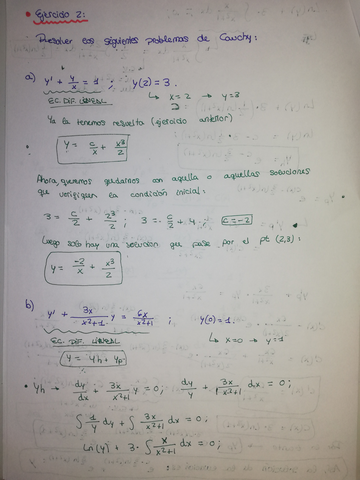 • Ejercicio 2:
Resolver los siguientes problemas de Cauchy:
a) y' + y/x = 1 ; y(2) = 3.
EC. DIF. LINEAL ↳ x = 2 → y = 3
Ya la tenemos resuelta (ejercicio anterior)
y = c/x + x³/2
Ahora, queremos quedarnos con aquella o aquellas soluciones
que verifiquen la condición inicial:
3 = c/2 + 2³/2 ; 3 = c/2 + 4 ; c = -2
Luego solo hay una solución que pase por el pt (2,3):
y = -2/x + x³/2
b) y' + 3x/x²+1 y = 6x/x²+1 ; y(0) = 1.
EC. DIF. LINEAL ↳ x = 0 → y = 1
y = yh + yp
• yh → dy/dx + 3x/x²+1 y = 0 ; dy/y + 3x/x²+1 dx = 0 ;
∫ 1/y dy + ∫ 3x/x²+1 dx = 0 ;
Ln(y) + 3 · ∫ x/x²+1 dx = 0 ;